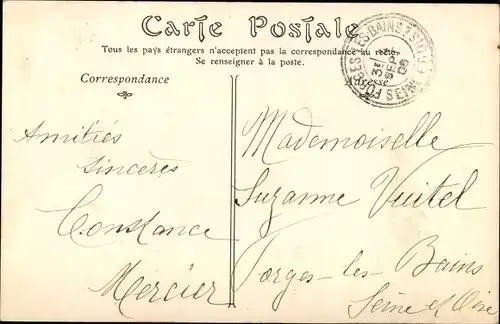 Carte Postale
Tous les pays étrangers n'acceptent pas la correspondance au recto.
Se renseigner à la poste.
Correspondance
Adresse
FORGES-LES-BAINS
SEINE
3E
SEP
Amitiés
sincères
Constance
Mercier
Mademoiselle
Suzanne Vuitel
Forges-les-Bains
Seine et Oise